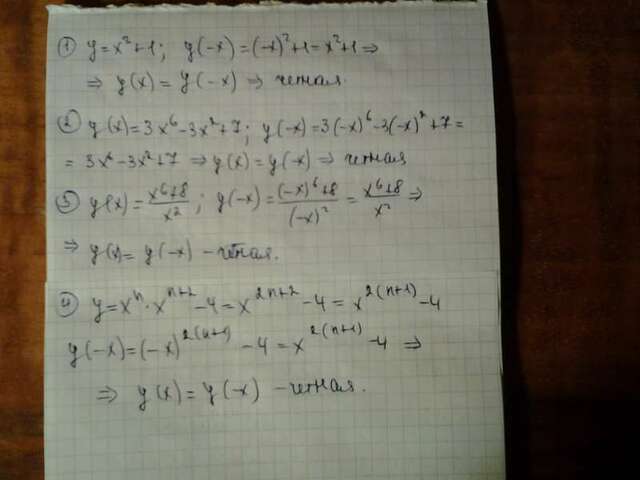 ① y=x²+1; y(-x)=(-x)²+1=x²+1⇒
⇒ y(x)=y(-x)⇒ четная.
② y(x)=3x⁶-3x²+7; y(-x)=3(-x)⁶-3(-x)²+7=
= 3x⁶-3x²+7 ⇒y(x)=y(-x)⇒ четная
③ y(x)=(x⁶+8)/x²; y(-x)=((-x)⁶+8)/(-x)²=(x⁶+8)/x² ⇒
⇒ y(x)=y(-x) - четная.
④ y=xⁿ·xⁿ⁺²-4=x²ⁿ⁺²-4=x²⁽ⁿ⁺¹⁾-4
y(-x)=(-x)²⁽ⁿ⁺¹⁾-4=x²⁽ⁿ⁺¹⁾-4 ⇒
⇒ y(x)=y(-x) - четная.